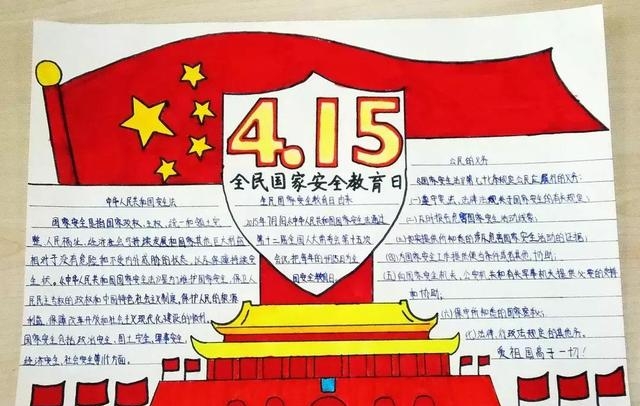 4.15
全民国家安全教育日
中华人民共和国国家安全法
国家安全是指国家政权、主权、统一和领土完
整、人民福祉、经济社会可持续发展和国家其他重大利益
相对处于没有危险和不受内外威胁的状态，以及保障持续安
全状。《中华人民共和国国家安全法》是为了维护国家安全，保卫人
民民主专政的政权和中国特色社会主义制度，保护人民的根本
利益，保障改革开放和社会主义现代化建设的顺利
国家安全包括政治安全、国土安全、军事安全、
经济安全、社会安全等11个方面。
全民国家安全教育日由来
2015年7月1日《中华人民共和国国家安全法》通过
第十二届全国人大常委会第十五次
会议，把每年的4月15日为全
国安全教育日
公民的义务
《国家安全法》第七十七条规定公民应履行的义务：
(一)遵守宪法、法律法规关于国家安全的有关规定；
(二)及时报告危害国家安全活动线索；
(三)如实提供所知悉的涉及危害国家安全活动的证据；
(四)为国家安全工作提供便利条件或者其他协助；
(五)向国家安全机关、公安机关和有关军事机关提供必要的支持
和协助；
(六)保守所知悉的国家秘密；
(七)法律、行政法规规定的其他义务。
爱祖国高于一切！